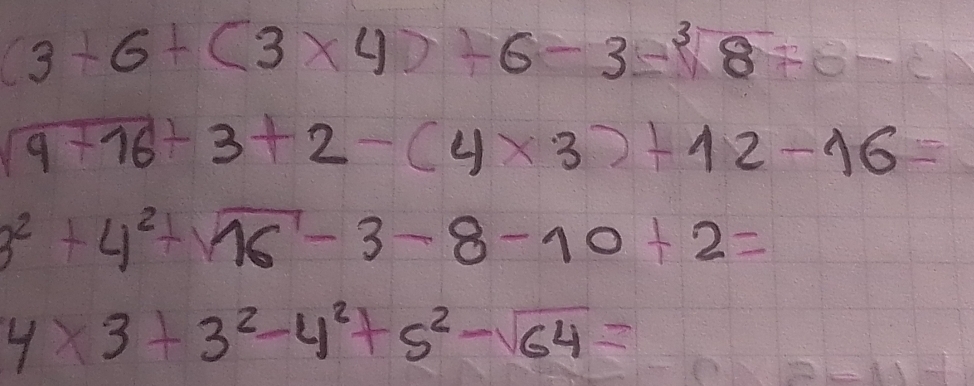 (3+6+(3×4)+6-3-∛8=
√9+16+3+2-(4×3)+12-16=
3²+4²+√16-3-8-10+2=
4×3+3²-4²+5²-√64=